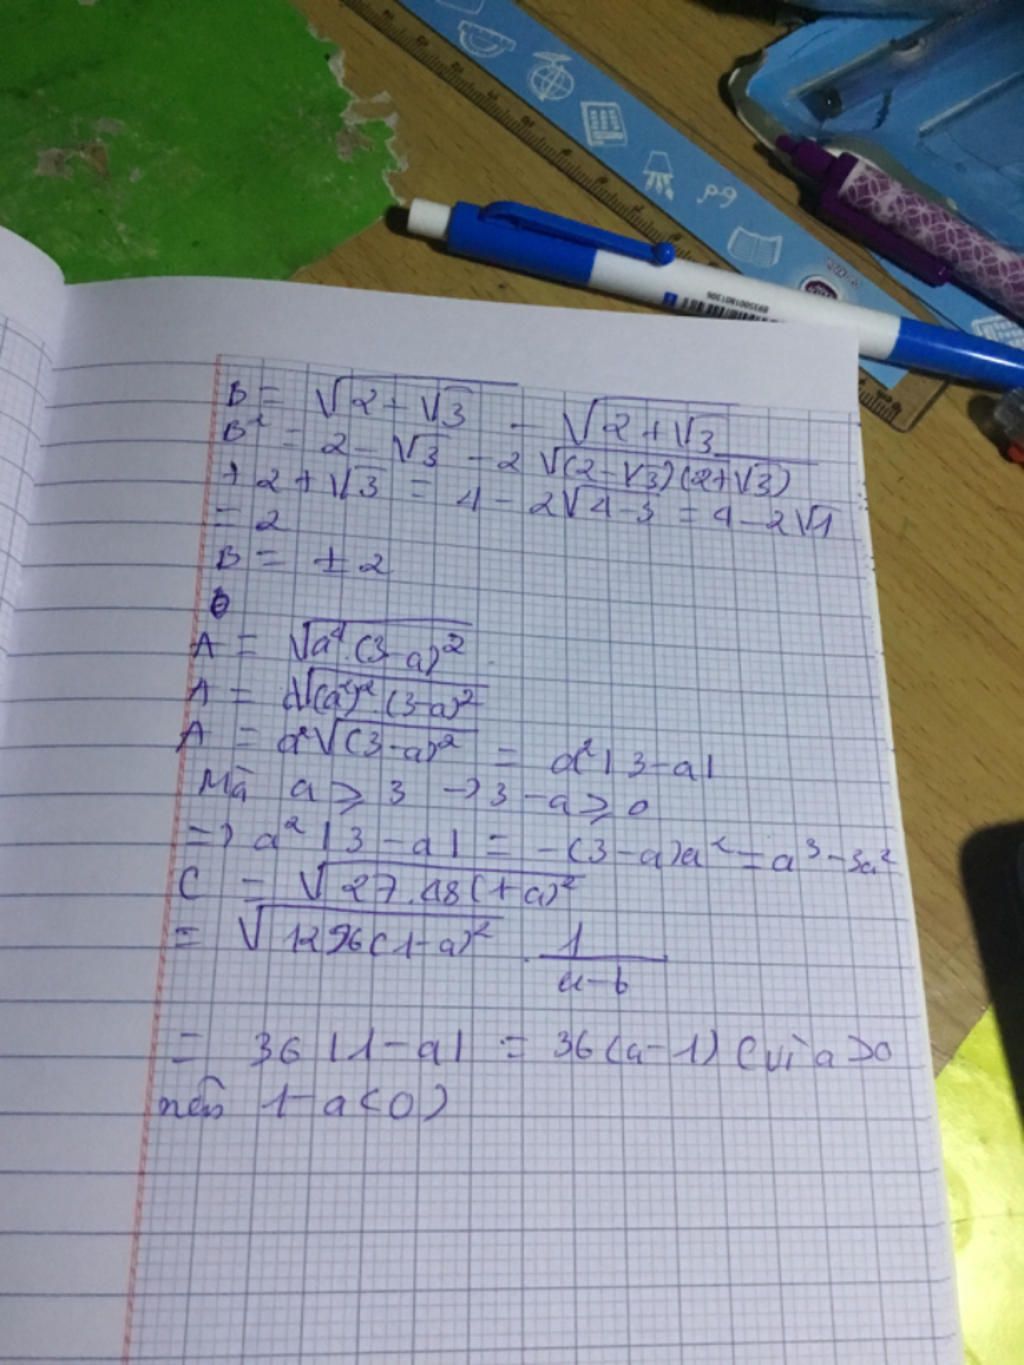 8935001801306
B = √2+√3 - √2+√3
B² = 2-√3 - 2√(2-√3)(2+√3)
+ 2+√3 = 4 - 2√4-3 = 4-2√1
= 2
B = ± 2
A = √a⁴.(3-a)²
A = √(a²)².(3-a)²
A = a²√(3-a)² = a²|3-a|
Mà a ≥ 3 → 3-a ≥ 0
=> a²|3-a| = -(3-a)a² = a³-3a²
C = √27.48(1+a)²
= √1296(1-a)² . 1/a-b
= 36|1-a| = 36(a-1) (vì a>0
nên 1-a<0)